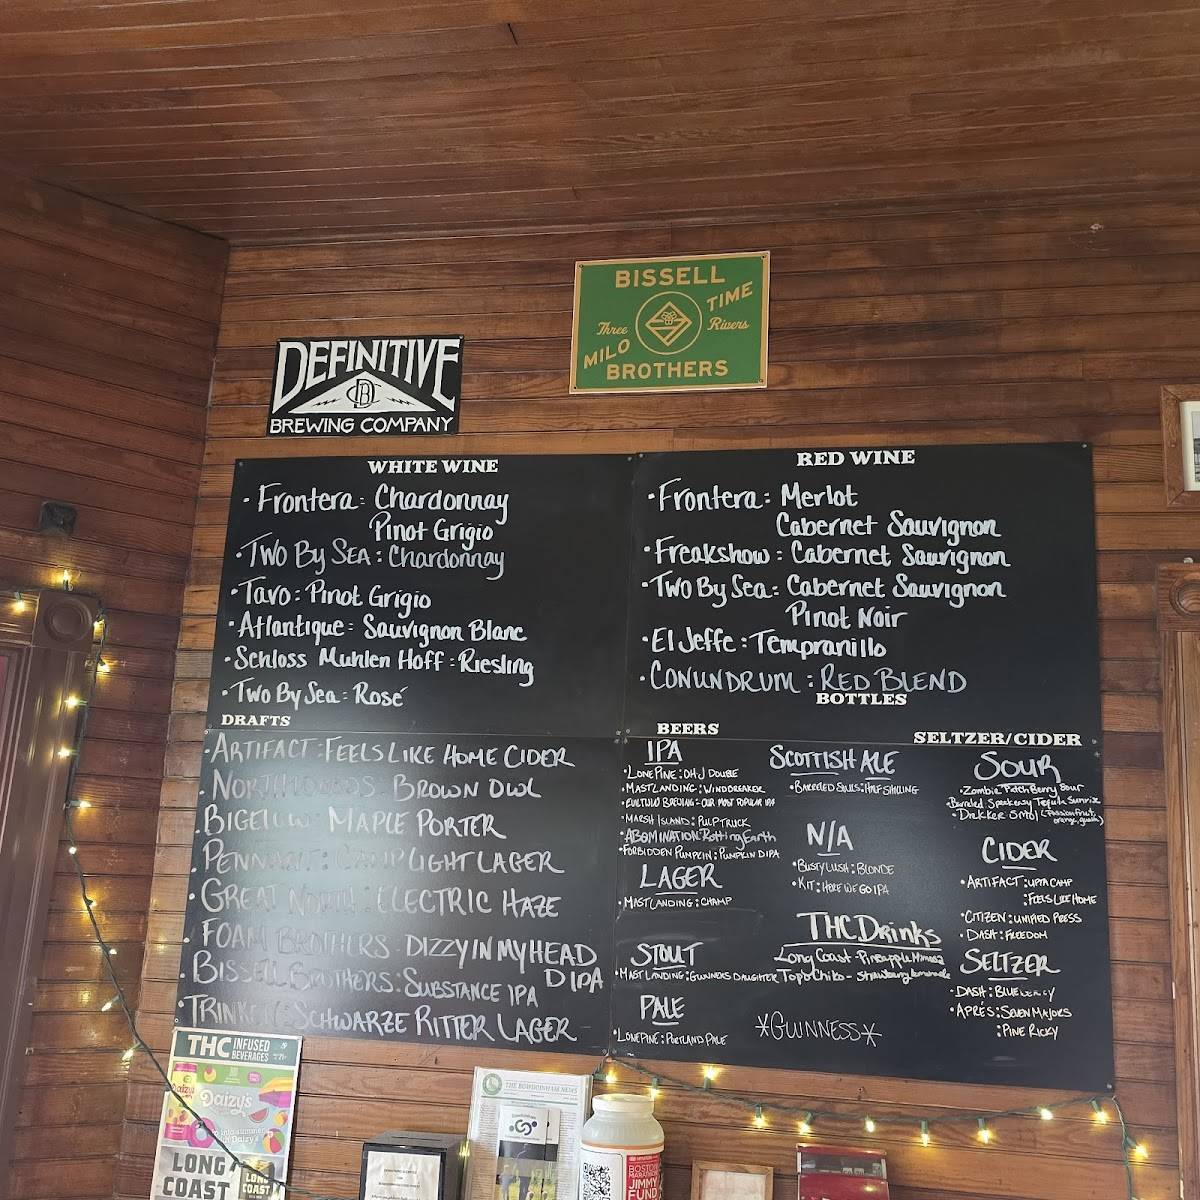 BISSELL
TIME
Three Rivers
MILO
BROTHERS
DEFINITIVE
DBC
BREWING COMPANY
WHITE WINE
• Frontera: Chardonnay
Pinot Grigio
• TWO BY SEA: Chardonnay
• Tavo: Pinot Grigio
• Atlantique: Sauvignon Blanc
• Schloss Muhlen Hoff: Riesling
• Two By Sea: Rosé
RED WINE
• Frontera: Merlot
Cabernet Sauvignon
• Freakshow: Cabernet Sauvignon
• Two By Sea: Cabernet Sauvignon
Pinot Noir
• El Jeffe: Tempranillo
• CONUNDRUM: RED BLEND
DRAFTS
• ARTIFACT: FEELS LIKE HOME CIDER
BROWN OWL
• BIGELOW: MAPLE PORTER
• PENNANT: CAMP LIGHT LAGER
• GREAT NORTH: ELECTRIC HAZE
• FOAM BROTHERS: DIZZY IN MY HEAD
DIPA
• BISSELL BROTHERS: SUBSTANCE IPA
• SCHWARZE RITTER LAGER
BOTTLES
BEERS
IPA
• LONE PINE: OH-J DOUBLE
• MAST LANDING: WINDBREAKER
BREWING: OUR MOST POPULAR IPA
• MARSH ISLAND: PULP TRUCK
• ABOMINATION: Rotting Earth
• FORBIDDEN PUMPKIN: PUMPKIN DIPA
LAGER
• MAST LANDING: CHAMP
STOUT
• MAST LANDING: GUNNERS DAUGHTER
PALE
• LONE PINE: PORTLAND PALE
SCOTTISH ALE
• BARRELED SOULS: HALF SHILLING
N/A
• BUSTY LUSH: BLONDE
• KIT: HERE WE GO IPA
THC Drinks
Long Coast - Pineapple Mimosa
Topo Chiko - Strawberry Lemonade
*GUINNESS*
SELTZER/CIDER
SOUR
• Zombie Patch Berry Sour
• Barreled Speakeasy Tequila Sunrise
• Drekker (Passionfruit,
orange, guava)
CIDER
• ARTIFACT: UPTA CAMP
: FEELS LIKE HOME
• CITIZEN: UNIFIED PRESS
• DASH: FREEDOM
SELTZER
• DASH: BLUEBERRY
• APRÉS: SEVEN MAJORS
: PINE RICKY
THC INFUSED
BEVERAGES
Daizy's
LONG
COAST
LONG
COAST
THE BOWDOINHAM NEWS
BOSTON
MARATHON
JIMMY
FUND